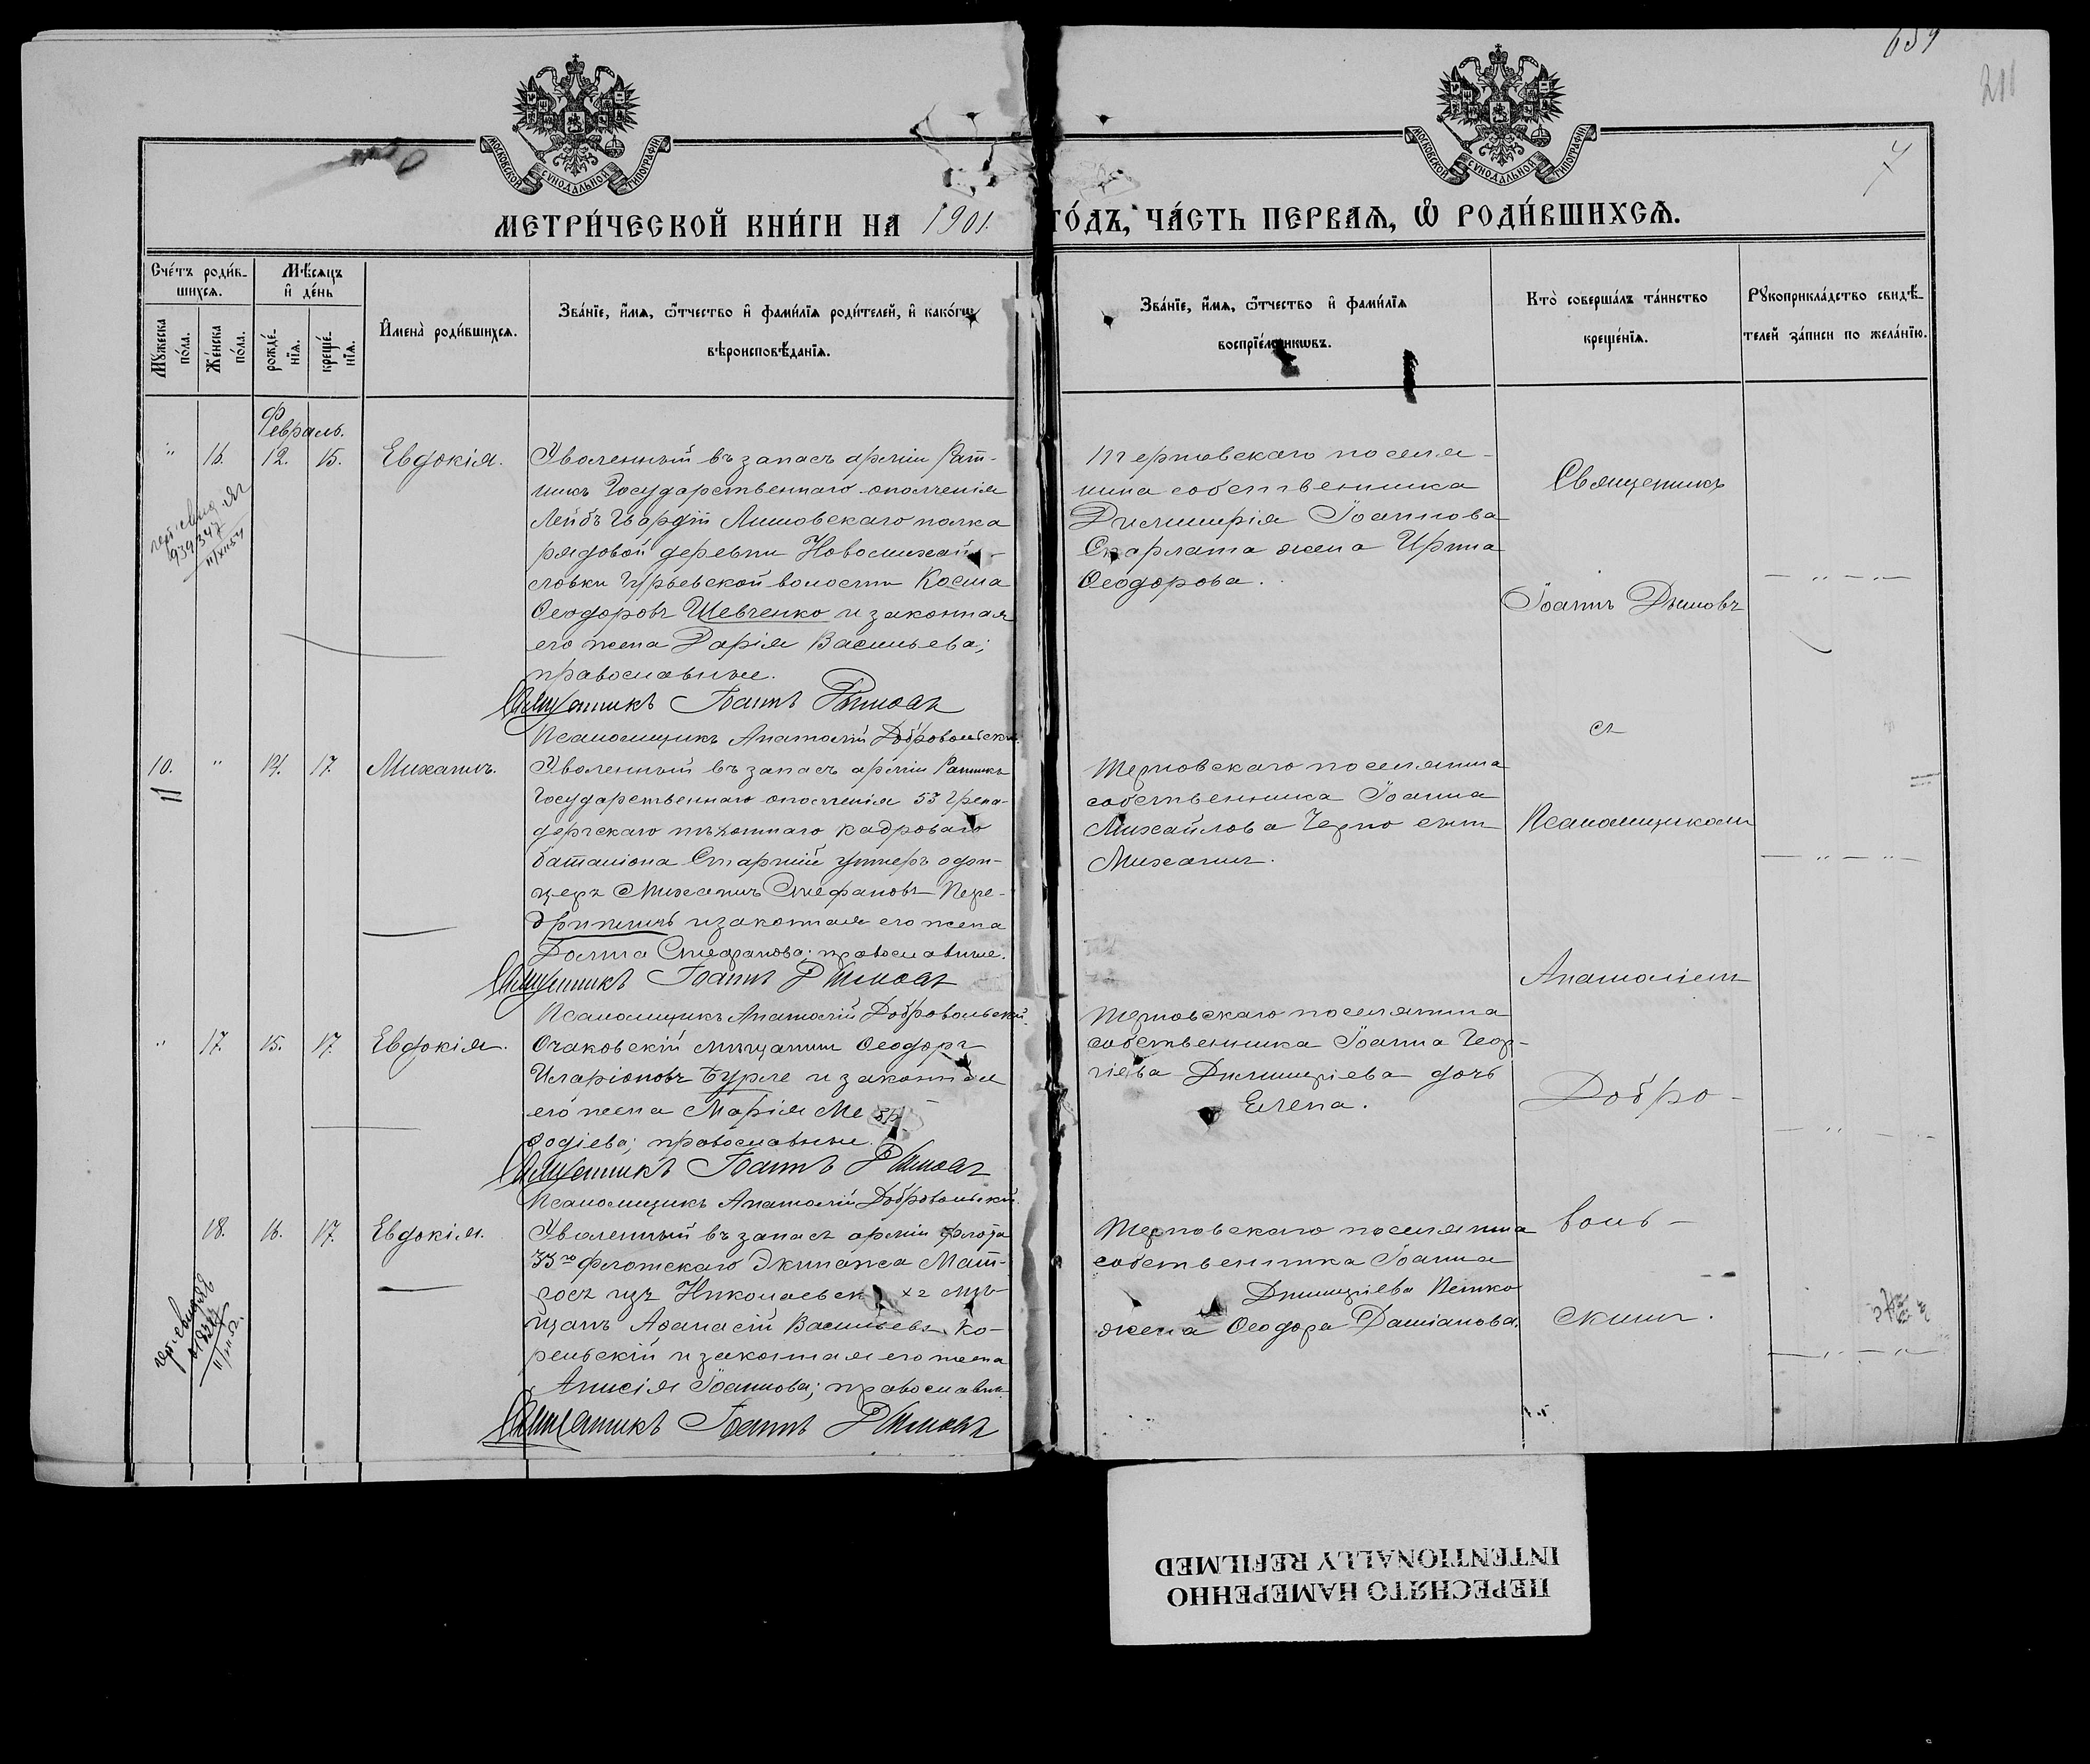 659
211
7
МОСКОВСКОЙ СѴНОДАЛЬНОЙ ТИПОГРАФІИ.
МОСКОВСКОЙ СѴНОДАЛЬНОЙ ТИПОГРАФІИ.
МЕТРИ́ЧЕСКОЙ КНИ́ГИ НА 1901. ГО́ДЪ, ЧА́СТЬ ПЕРВАѦ, Ѿ РОДИ́ВШИХСѦ.
Сче́тъ роди́в-
шихсѧ.
Мѣ́сѧцъ
и҆ де́нь
Мꙋ́жеска
по́ла.
Же́нска
по́ла.
рожде́-
нїѧ.
креще́-
нїѧ.
И҆мена̀ роди́вшихсѧ.
Зва́нїе, и҆́мѧ, ѻ҆́тчество и҆ фами́лїѧ роди́телей, и҆ како́гѡ
вѣроисповѣ́данїѧ.
Зва́нїе, и҆́мѧ, ѻ҆́тчество и҆ фами́лїѧ
воспрїе́мникѡвъ.
Кто̀ соверша́лъ та́инство
креще́нїѧ.
Рꙋкоприкла́дство свидѣ́-
телей за́писи по жела́нїю.
Февраль.
" 16. 12. 15. Евдокія.
Уволенный въ запасъ арміи Рат-
никъ Государственнаго ополченія
Лейбъ Гвардіи Литовскаго полка
рядовой деревни Новомихай-
ловки Гурьевской волости Косма
Ѳеодоровъ Шевченко и законная
его жена Дарія Васильева;
православные.
Священникъ Іоаннъ Дымовъ
Псаломщикъ Анатолій Добровольскій.
Терновскаго поселя-
нина собственника
Димитрія Іоаннова
Скарлата жена Ирина
Ѳеодорова.
Священникъ
Іоаннъ Дымовъ
съ
939347
11/XII 54
10. " 14. 17. Михаилъ.
Уволенный въ запасъ арміи Ратникъ
Государственнаго ополченія 53 Грена-
дерскаго пѣхотнаго кадроваго
баталіона Старшій унтеръ офи-
церъ Михаилъ Стефановъ Пере-
и законная его жена
Домна Стефанова; православные.
Священникъ Іоаннъ Дымовъ
Псаломщикъ Анатолій Добровольскій.
Терновскаго поселянина
собственника Іоанна
Михайлова Черно сынъ
Михаилъ.
Псаломщикомъ
Анатоліемъ
" 17. 15. 17. Евдокія.
Очаковскій мѣщанинъ Ѳеодоръ
Иларіоновъ Бурле и законная
его жена Марія Ме
ѳодіева; православные.
Священникъ Іоаннъ Дымовъ
Псаломщикъ Анатолій Добровольскій.
Терновскаго поселянина
собственника Іоанна Геор-
гіева Димитріева дочь
Елена.
Добро-
18. 16. 17. Евдокія.
Уволенный въ запасъ арміи флота
33го флотскаго Экипажа Мат-
росъ изъ Николаевск хъ мѣ-
щанъ Аѳанасій Васильевъ Ко-
рельскій и законная его жена
Анисія Іоаннова; православн.
Священникъ Іоаннъ Дымовъ
Терновскаго поселянина
собственника Іоанна
Димитріева Петко
жена Ѳеодора Даміанова.
воль-
скимъ.
ПЕРЕСНЯТО НАМЕРЕННО
INTENTIONALLY REFILMED